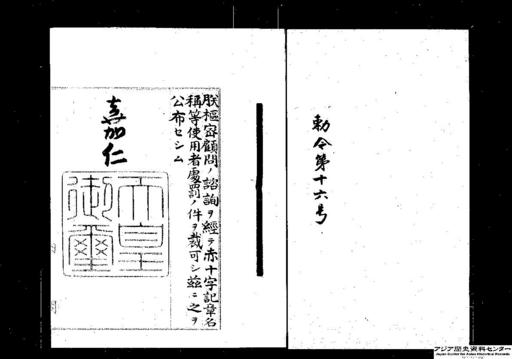 勅令第十六号
朕樞密顧問ノ諮詢ヲ經テ赤十字記章名
稱等使用者處罰ノ件ヲ裁可シ茲ニ之ヲ
公布セシム
嘉仁
天皇
御璽
アジア歴史資料センター
Japan Center for Asian Historical Records